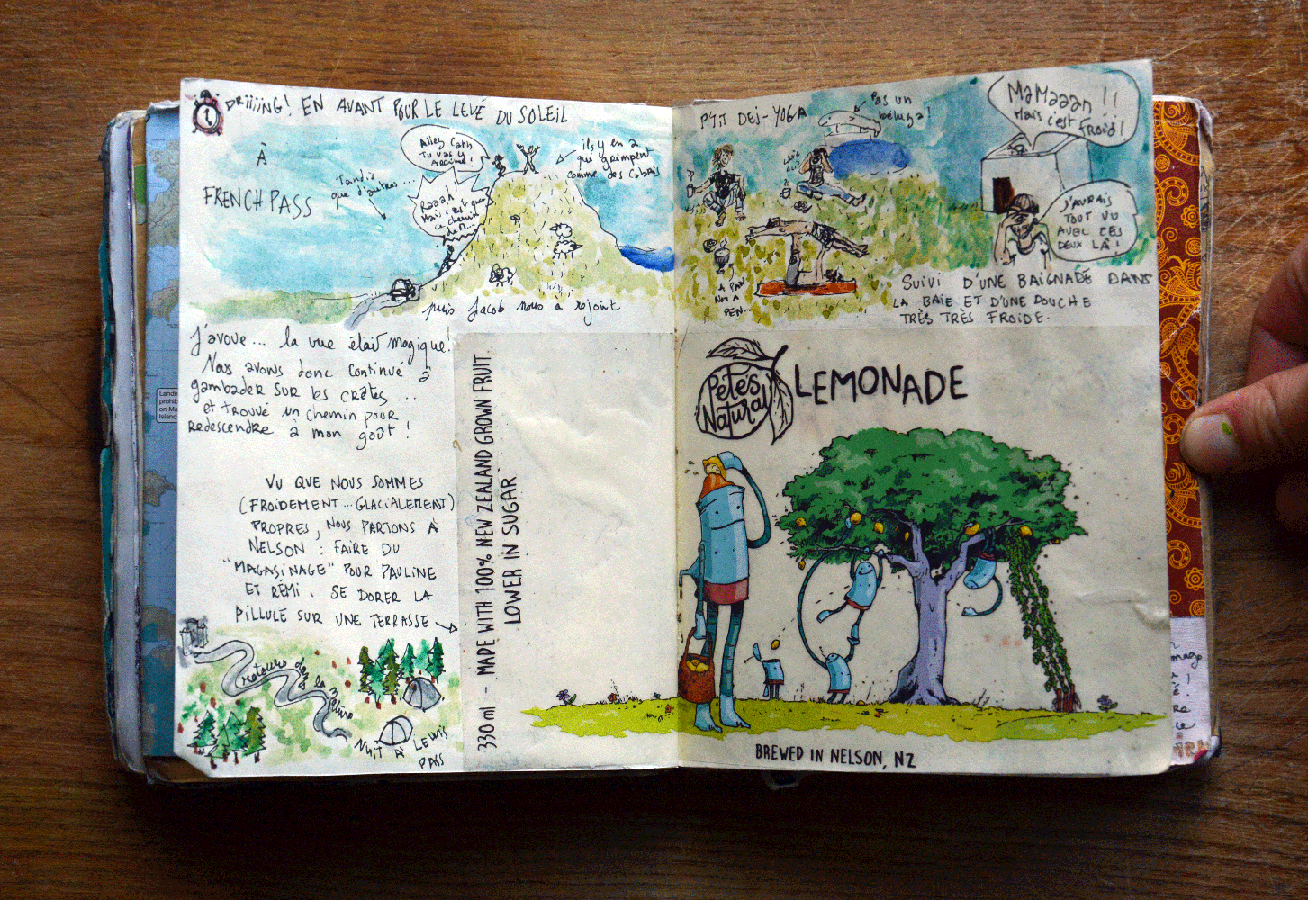 DRIIIING! EN AVANT POUR LE LEVÉ DU SOLEIL
À
FRENCH PASS
Tandis
que d'autres...
Allez Cath
TU VAS Y
ARRIVER!
Mais c'est
ce chemin
il y en a
qui grimpent
comme des cabris
puis Jacob nous a rejoint
J'avoue... la vue était magique!
Nous avons donc continué à
gambader sur les crêtes...
et trouvé un chemin pour
redescendre à mon goût!
VU QUE NOUS SOMMES
(FROIDEMENT... GLACIALEMENT)
PROPRES, NOUS PARTONS À
NELSON : FAIRE DU
"MAGASINAGE" POUR PAULINE
ET RÉMI. SE DORER LA
PILLULE SUR UNE TERRASSE
retour de la
NUIT À LEWIS
PASS
330 ml - MADE WITH 100% NEW ZEALAND GROWN FRUIT.
LOWER IN SUGAR
P'TIT DEJ-YOGA
Pas un
beluga!
MaMaaan!!
Mais c'est froid!
J'AURAIS
TOUT VU
AVEC CES
DEUX LÀ!
SUIVI D'UNE BAIGNADE DANS
LA BAIE ET D'UNE DOUCHE
TRÈS TRÈS FROIDE.
Pete's
Natural
LEMONADE
BREWED IN NELSON, NZ